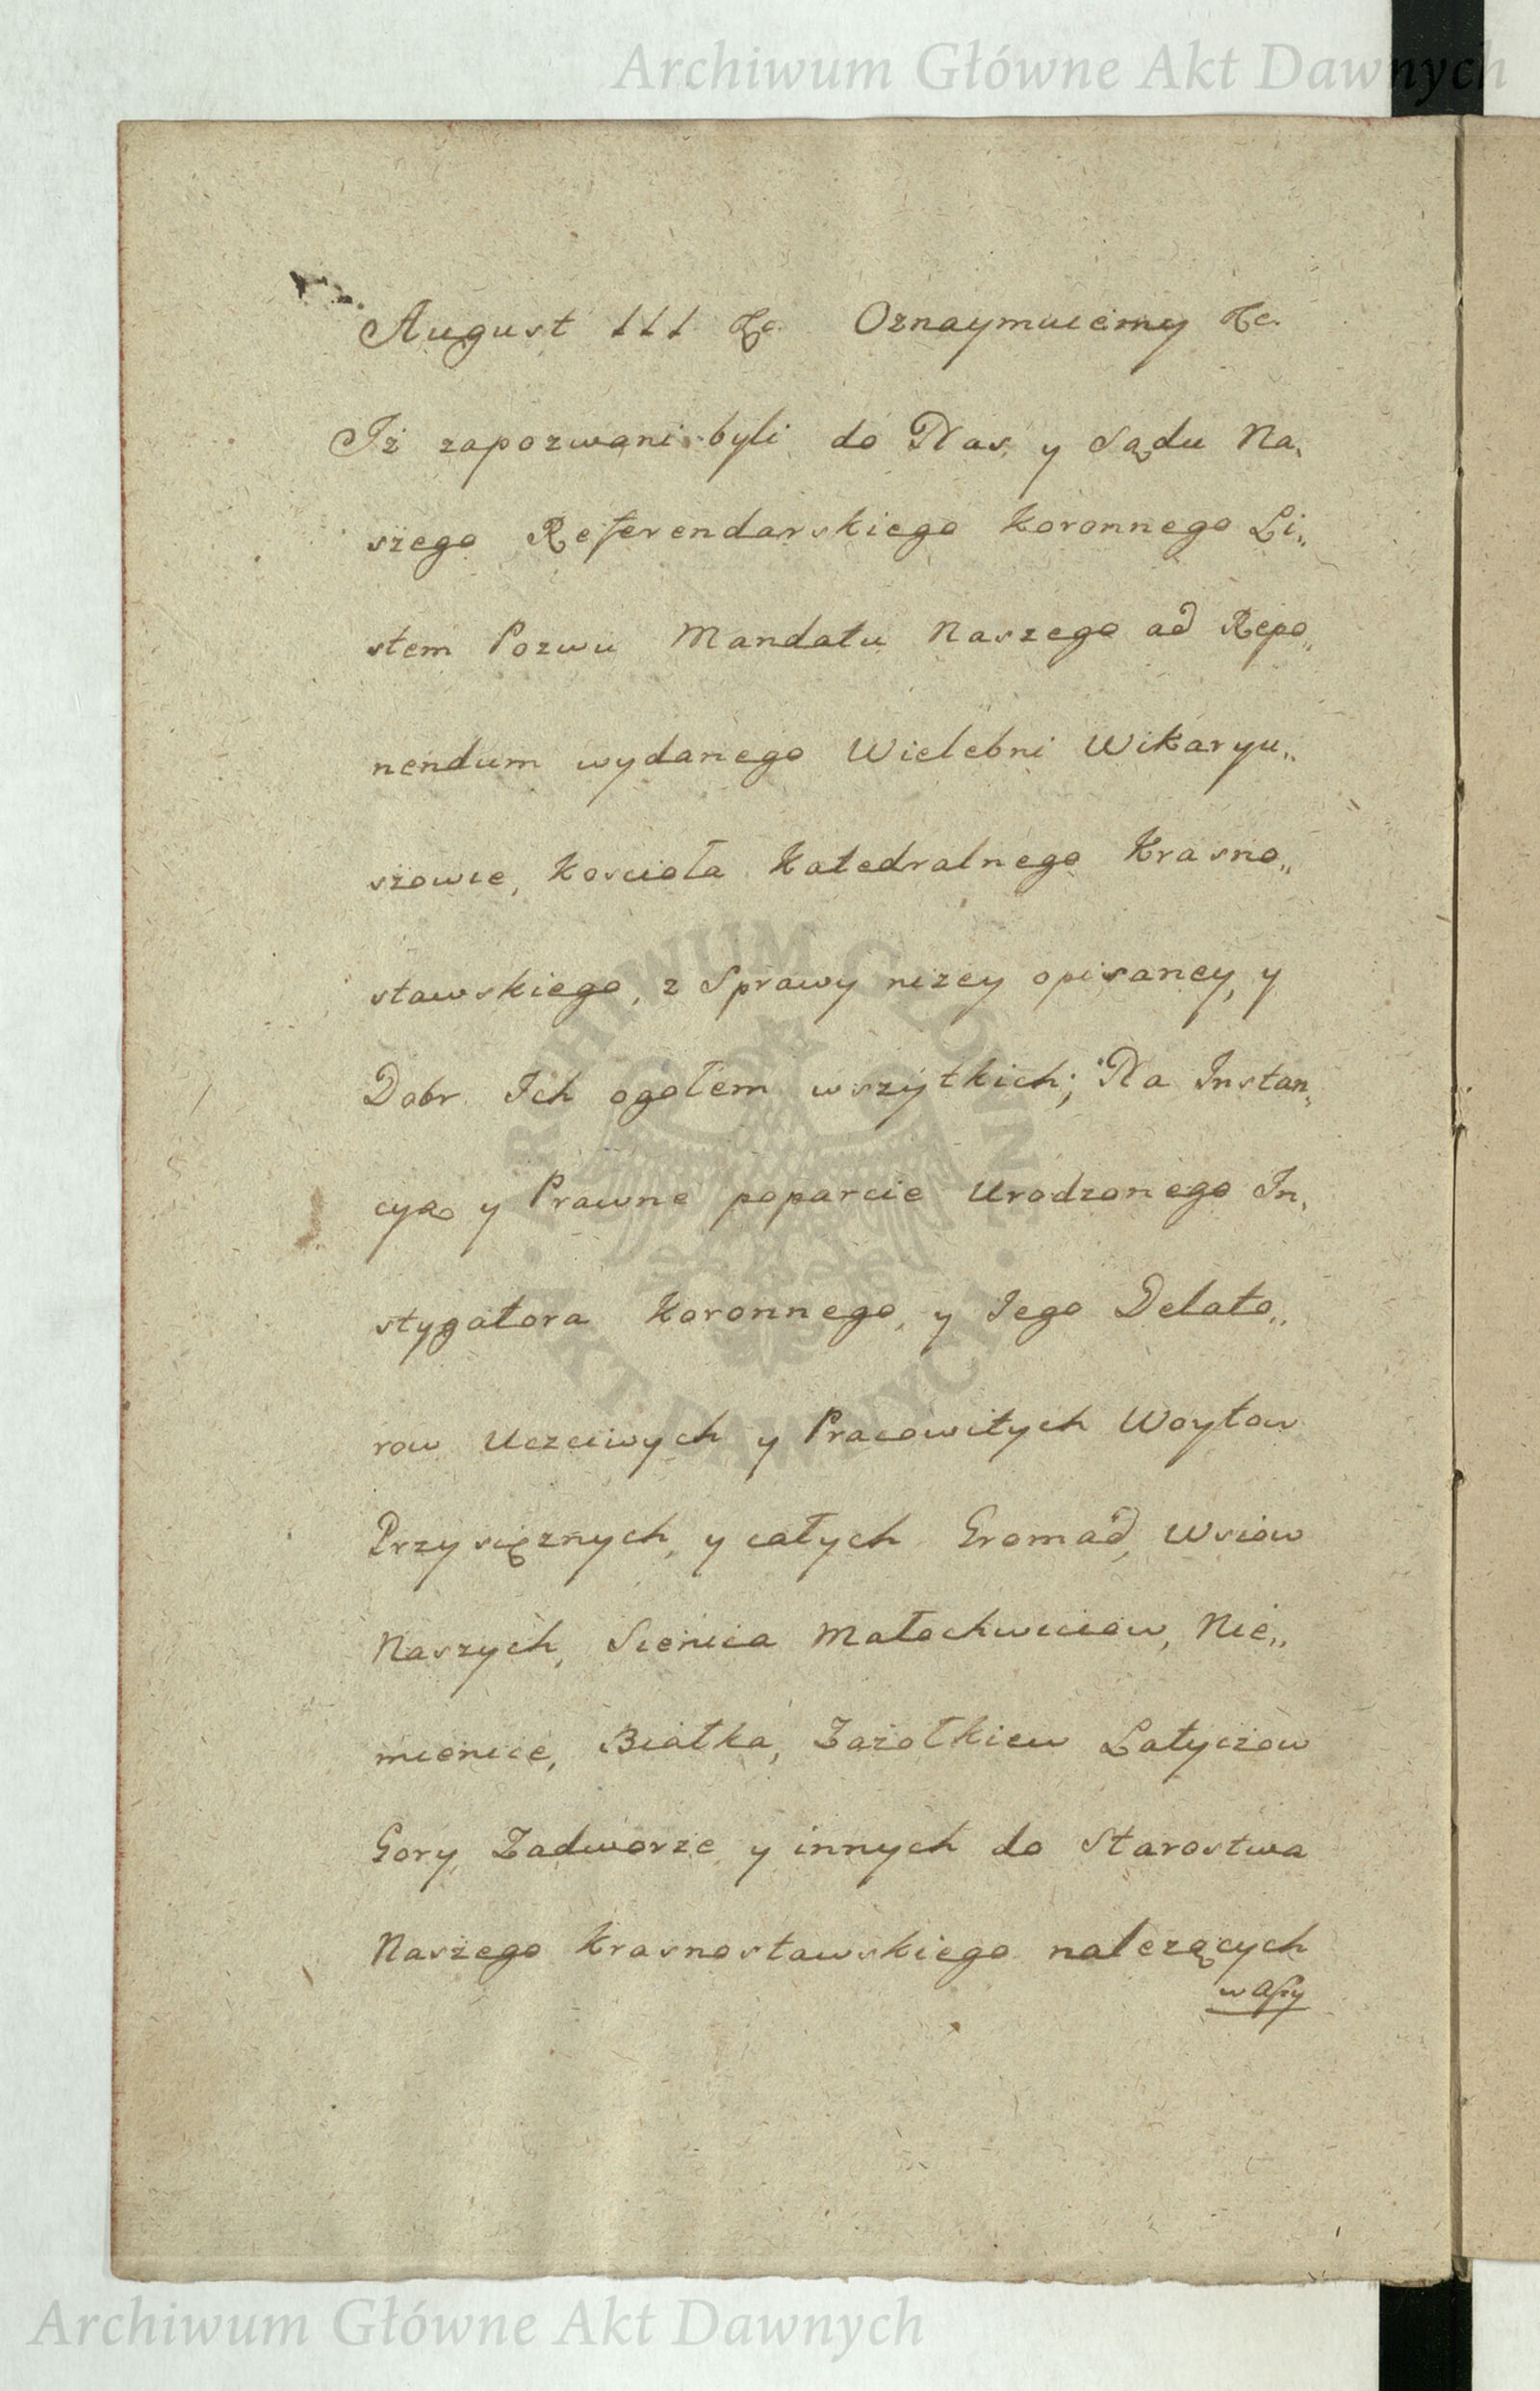 Archiwum Główne Akt Dawnych
August III &c. Oznaymuiemy &c.
Iż zapozwani byli do Nas, y Sądu Na,
szego Referendarskiego Koronnego Li„
stem Pozwu Mandatu Naszego ad Repo„
nendum wydanego Wielebni Wikaryu„
szowie, Kościoła Katedralnego Krasno„
stawskiego, z Sprawy niżey opisaney, y
Dobr Ich ogołem wszytkich; Na Instan„
cyą y Prawne poparcie Urodzonego In„
stygatora Koronnego, y Iego Delato„
row Uczciwych y Pracowitych Woytow
Przysiężnych, y całych Gromad, Wsiow
Naszych, Sienica Małochwiciow, Nie„
mienice, Białka, Zażołkiew Latyczow
Gory Zadworze y innych do Starostwa
Naszego Krasnostawskiego należących
ARCHIWUM GŁÓWNE AKT DAWNYCH
Archiwum Główne Akt Dawnych